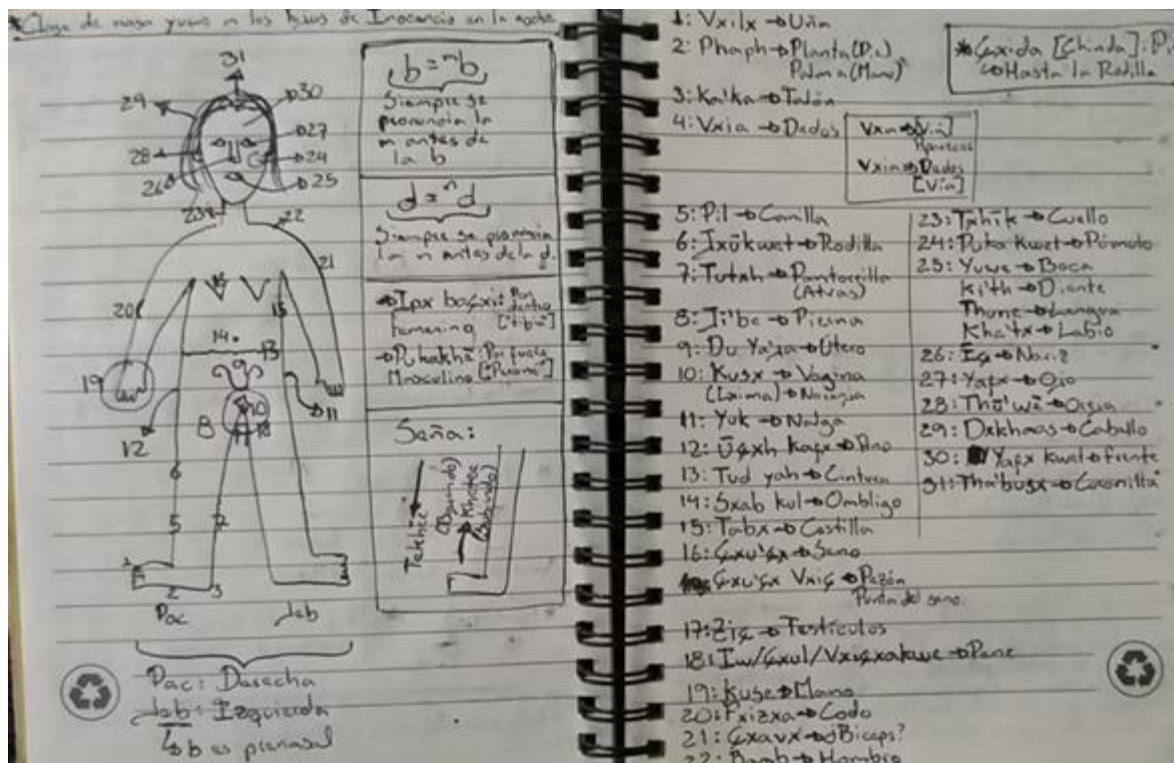 *Clase de nasa yuwe en los de Inocencio en la noche
31
29
30
28
27
24
26
25
23
22
21
20
15
14.
13
9
19
10
11
12
8
18
6
5
7
1
2
3
Pac
Jeb
Pac: Derecha
Jeb: Izquierda
b es prenasal
b = ᵐb
Siempre se
pronuncia la
m antes de
la b
d = ⁿd
Siempre se pronuncia
la n antes de la d.
Femenino
Masculino
Seña:
1: Vxilx → Uña
2: Phaph → Planta (Pie)
Palma (Mano)
3: Ka'ka → Talón
4: Vxia → Dedos
Vxia → Dedos
[Vía]
*Çxida [Chinda]: Pi
Hasta la Rodilla
5: Pil → Canilla
6: Ixũkwet → Rodilla
7: Tutxh → Pantorrilla
(Atras)
8: Ji'be → Pierna
9: Du Ya'ja → Utero
10: Kusx → Vagina
(Lxima) →
11: Yuk → Nalga
12: Ũçxh Kafx → Ano
13: Tud yah → Cintura
14: Sxab kul → Ombligo
15: Tabx → Costilla
16: Çxu'çx → Seno
Çxu'çx Vxiç → Pezón
Punta del seno.
17: Ziç → Testículos
18: Iw/Çxul/Vxiçxakwe → Pene
19: Kuse → Mano
20: Pxizxa → Codo
21: Çxavx → ¿Biceps?
22: Hombro
23: Txhĩk → Cuello
24: Puka kwet → Pómulo
25: Yuwe → Boca
Ki'th → Diente
Thune → Lengua
Kha'tx → Labio
26: Ĩç → Nariz
27: Yafx → Ojo
28: Thũ'wẽ → Oreja
29: Dxkhaas → Cabello
30: Yafx kwet → Frente
31: Tha'busx → Coronilla